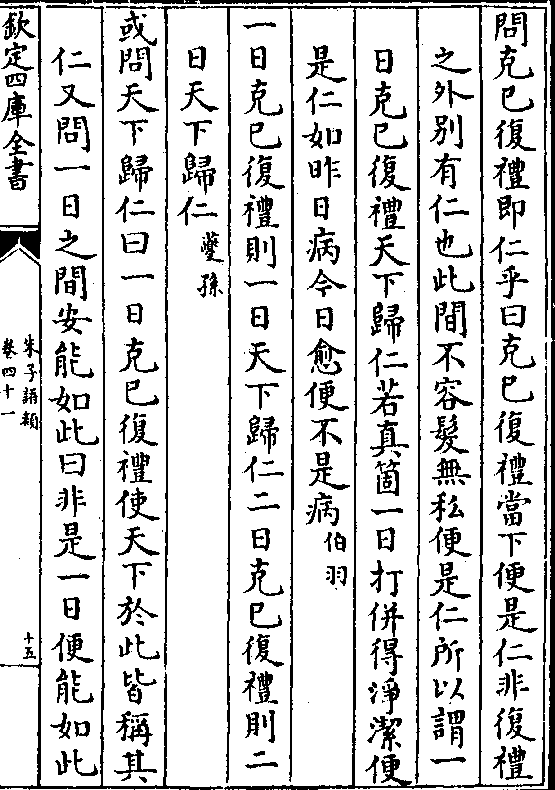 問克已復禮即仁乎曰克已復禮當下便是仁非復禮
之外别有仁也此間不容髮無私便是仁所以謂一
日克已復禮天下歸仁若真箇一日打併得淨潔便
是仁如昨日病今日愈便不是病伯羽
一日克已復禮則一日天下歸仁二日克已復禮則二
日天下歸仁夔孫
或問天下歸仁曰一日克已復禮使天下於此皆稱其
仁又問一日之間安能如此曰非是一日便能如此
欽定四庫全書
朱子語類
卷四十一
十五